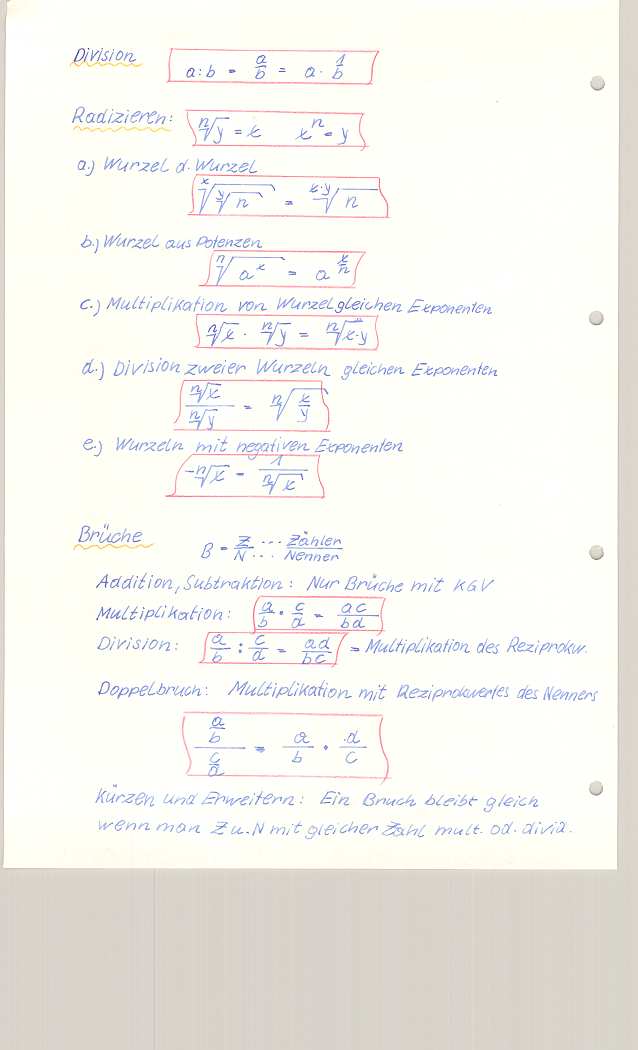 Division a:b = a/b = a · 1/b
Radizieren: ⁿ√y = x xⁿ = y
a.) Wurzel d. Wurzel
ˣ√(ʸ√n) = ˣ·ʸ√n
b.) Wurzel aus Potenzen
ⁿ√(aˣ) = a^(x/n)
c.) Multiplikation von Wurzel gleichen Exponenten
ⁿ√x · ⁿ√y = ⁿ√(x·y)
d.) Division zweier Wurzeln gleichen Exponenten
ⁿ√x / ⁿ√y = ⁿ√(x/y)
e.) Wurzeln mit negativen Exponenten
⁻ⁿ√x = 1/ⁿ√x
Brüche B = Z/N ... Zähler/Nenner
Addition, Subtraktion: Nur Brüche mit KGV
Multiplikation: a/b · c/d = ac/bd
Division: a/b : c/d = ad/bc = Multiplikation des Reziprokw.
Doppelbruch: Multiplikation mit Reziprokwertes des Nenners
(a/b)/(c/d) = a/b · d/c
Kürzen und Erweitern: Ein Bruch bleibt gleich
wenn man Z u. N mit gleicher Zahl mult. od. divid.